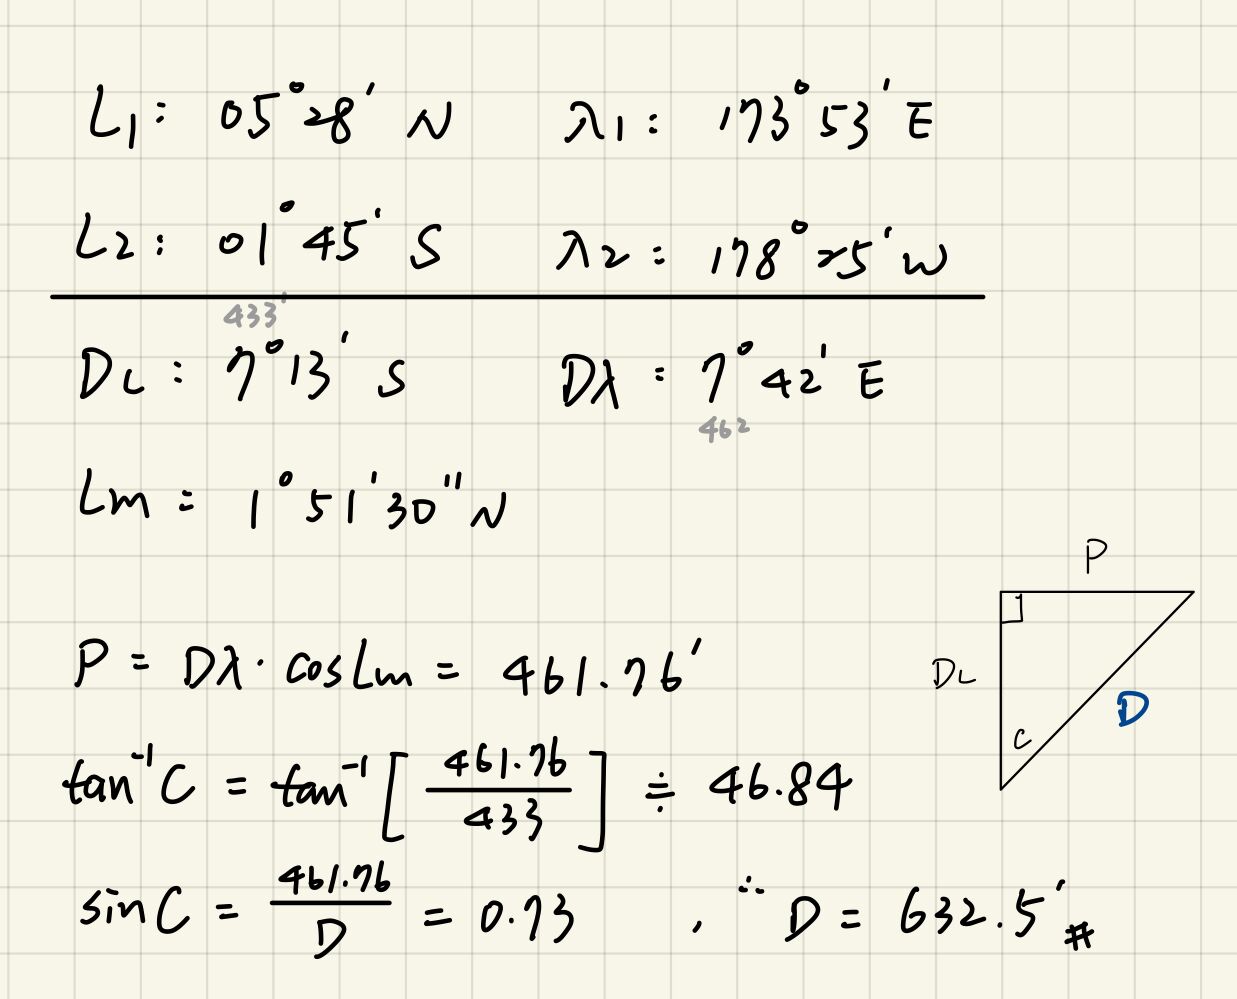 L1: 05°28' N λ1: 173°53' E
L2: 01°45' S λ2: 178°25' W
433'
DL: 7°13' S Dλ: 7°42' E
462
Lm = 1°51'30" N
P
P = Dλ · cosLm = 461.76'
DL
D
C
tan⁻¹ C = tan⁻¹ [ 461.76 / 433 ] ≑ 46.84
sin C = 461.76 / D = 0.73 , ∴ D = 632.5' #